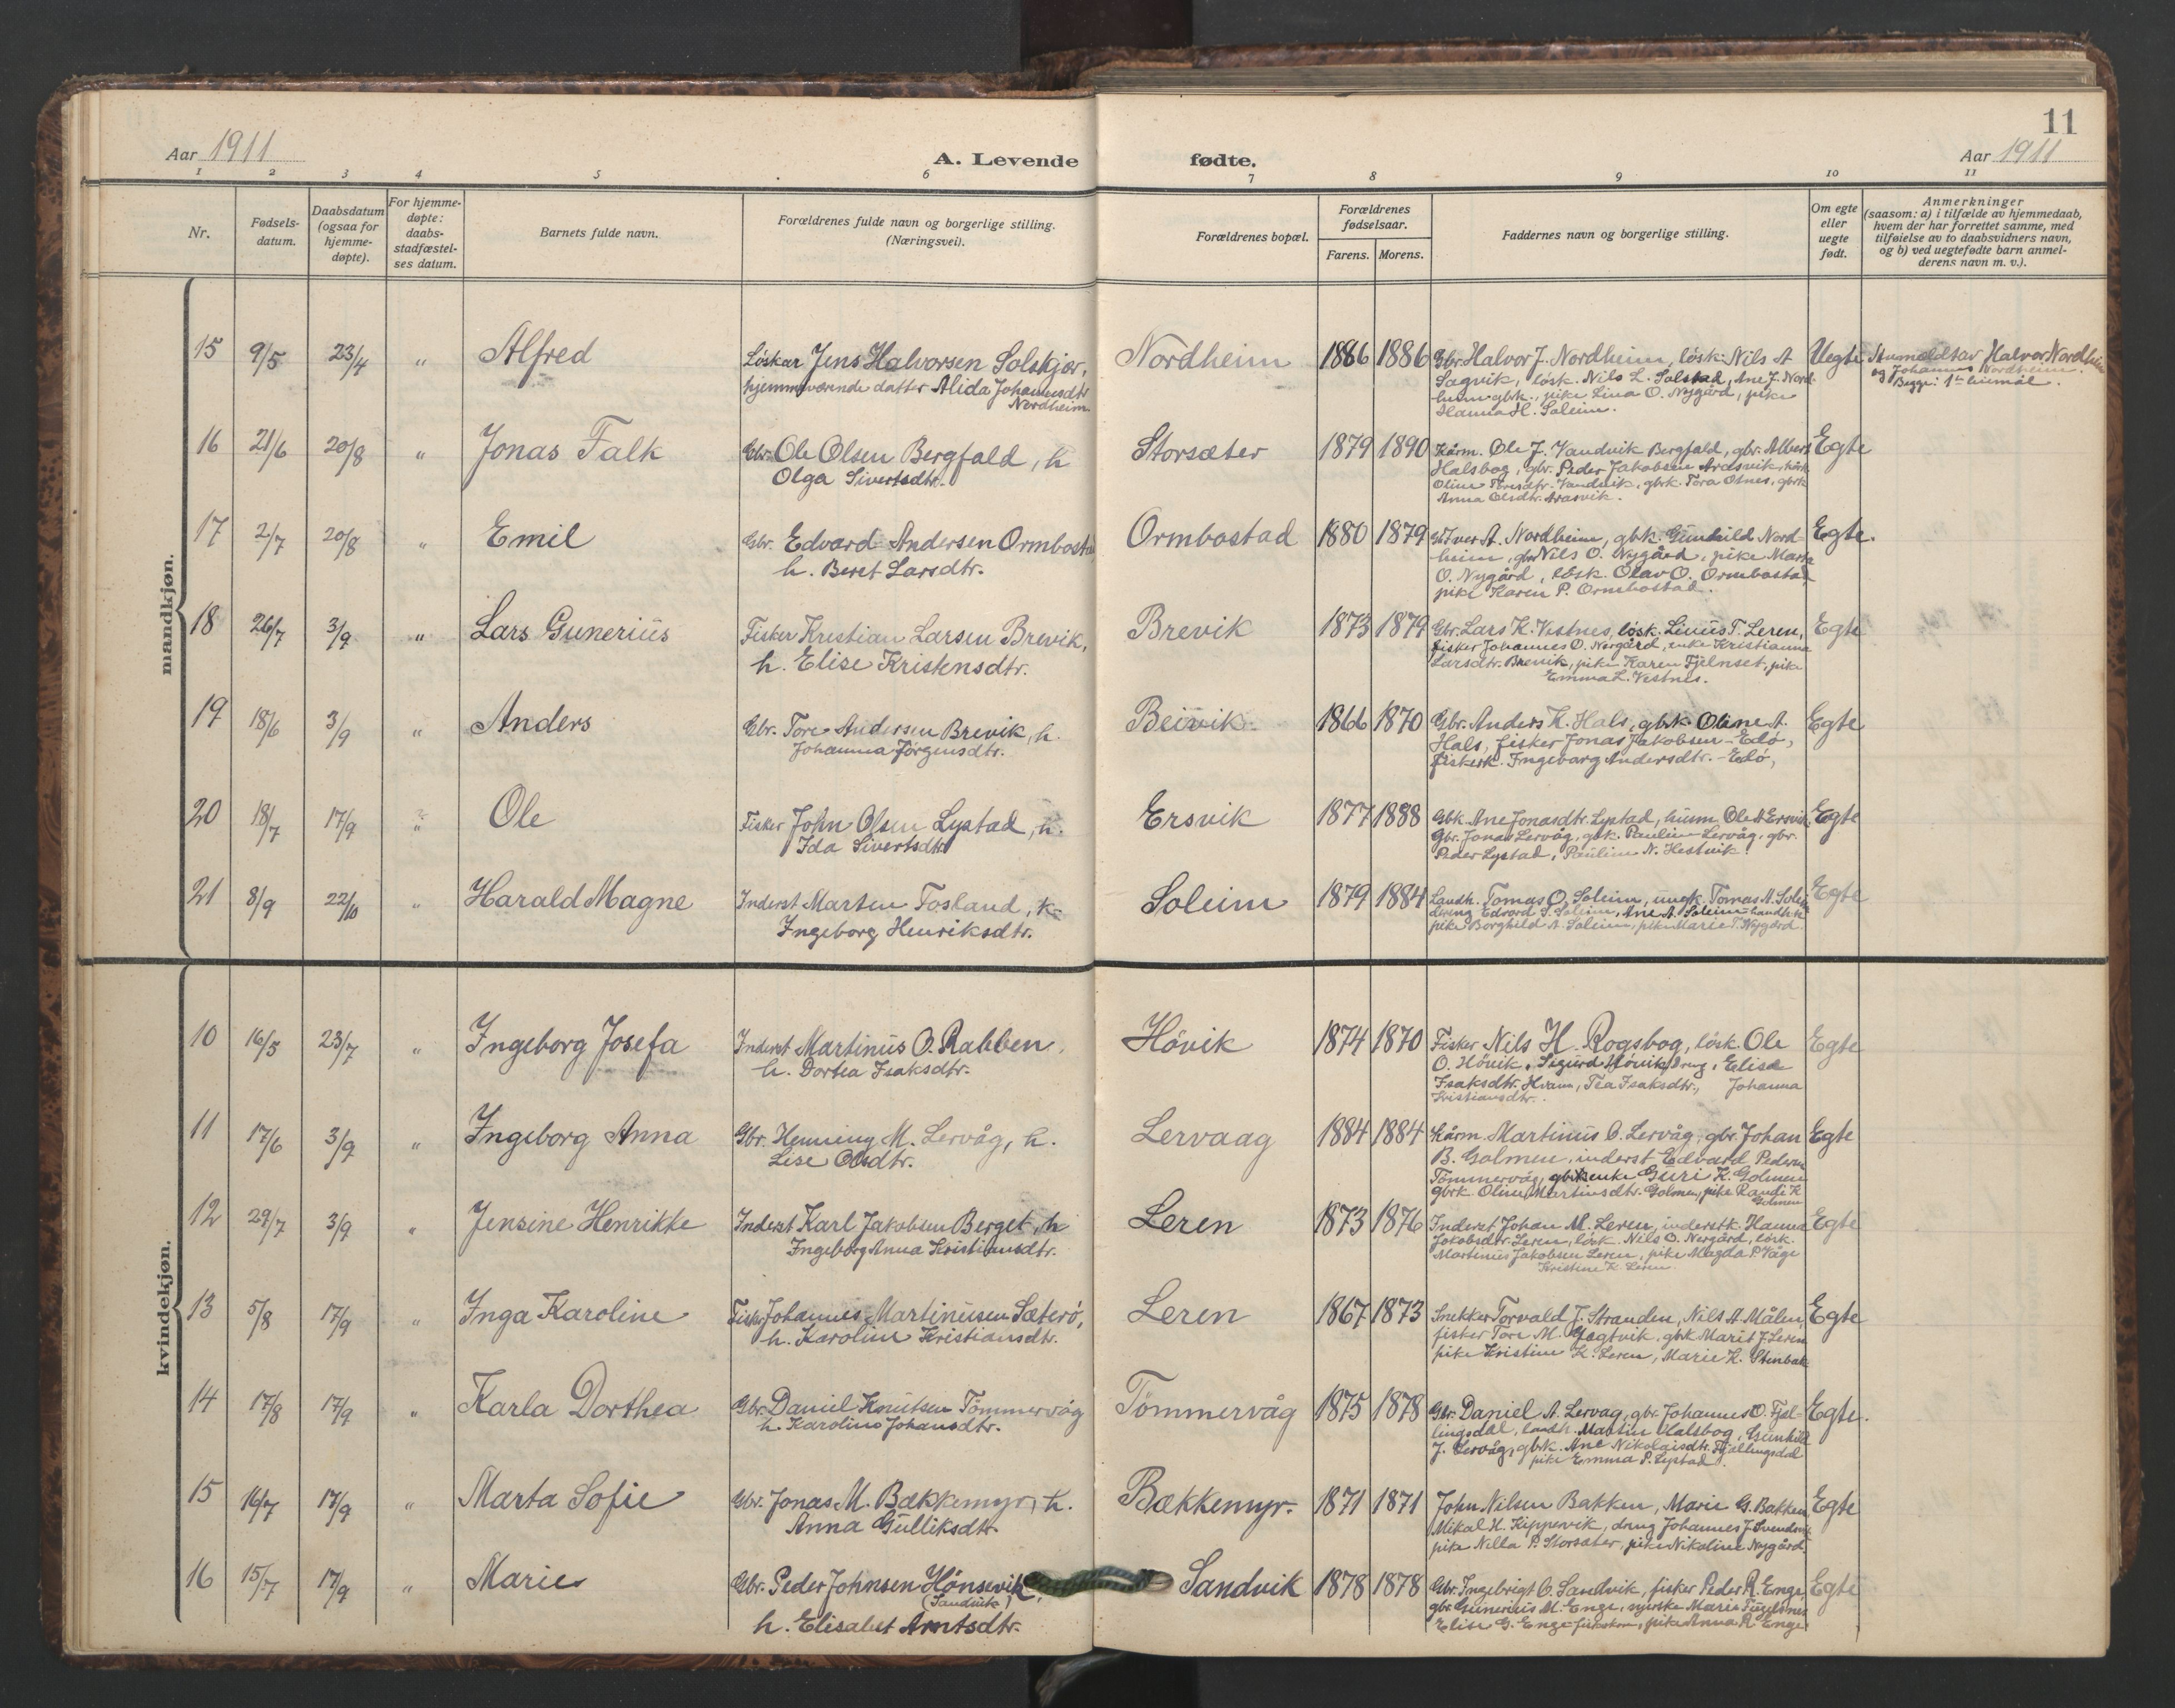 11
Aar 1911
A. Levende
fødte.
Aar 1911
1 2 3 4 5 6 7 8 9 10 11
Nr.
Fødsels-
datum.
Daabsdatum
(ogsaa for
hjemme-
døpte).
For hjemme-
døpte:
daabs-
stadfæstel-
ses datum.
Barnets fulde navn.
Forældrenes fulde navn og borgerlige stilling.
(Næringsvei).
Forældrenes bopæl.
Forældrenes
fødselsaar.
Farens. Morens.
Faddernes navn og borgerlige stilling.
Om egte
eller
uegte
født.
Anmerkninger
(saasom: a) i tilfælde av hjemmedaab,
hvem der har forrettet samme, med
tilføielse av to daabsvidners navn,
og b) ved uegtefødte barn anmel-
derens navn m. v.).
mandkjøn.
15 9/5 23/4 " Alfred
Löskar Jens Halvorsen Solskjær,
hjemmeværende datter Alida Johannesdtr
Nordheim
Nordheim 1886 1886
Gbr. Halvor J. Nordheim, lösk. Nils A
Sagvik, lösk. Nils L. Solstad, Ane J. Nord-
heim gbrk., pike Lina O. Nygård, pike
Hanna H. Soleim.
Uegte
Halvor Nordheim
og Johannes Nordheim.
Begge 1ste leiermål.
16 21/6 20/8 " Jonas Falk
Gbr. Ole Olsen Bergfald, h
Olga Sivertsdtr.
Storsæter 1879 1890
Kårm. Ole J. Vandvik Bergfald, gbr. Albert
Halsbog, gbr. Peder Jakobsen Arasvik, kårk
Oline Toresdtr. Vandvik, gbrk. Tora Otnes, gbrk
Anna Olsdtr. Arasvik.
Egte
17 2/7 20/8 " Emil
Gbr. Edvard Andersen Ormbostad
h. Beret Larsdtr.
Ormbostad 1880 1879
Iver A. Nordheim, gbk. Gunhild Nord-
heim, gbr Nils O. Nygård, pike Marta
O. Nygård, lösk. Olav O. Ormbostad
pike Karen P. Ormbostad.
Egte.
18 26/7 3/9 " Lars Gunerius
Fisker Kristian Larsen Brevik,
h. Elise Kristensdtr.
Brevik 1873 1879
Gbr. Lars K. Vestnes, lösk. Linus T. Leren,
fisker Johannes O. Nergård, enke Kristianna
Larsdtr. Brevik, pike Karen Fjelnset, pike
Emma L. Vestnes.
Egte
19 18/6 3/9 " Anders
Gbr. Tore Andersen Brevik, h.
Johanna Jörgensdtr.
Breivik 1866 1870
Gbr. Anders K. Hals, gbrk. Oline A.
Hals, fisker Jonas Jakobsen - Edö,
fiskerk. Ingeborg Andersdtr. - Edö,
Egte
20 18/7 17/9 " Ole
Fisker John Olsen Lystad, h.
Ida Sivertsdtr
Ersvik 1877 1888
Gbk. Ane Jonasdtr. Lystad, husm. Ole A Ersvik
Gbr. Jonas Lervåg, gbk. Pauline Lervåg, gbr.
Peder Lystad, Pauline N. Hestvik.
Egte
21 8/9 22/10 " Harald Magne
Inderst Marten Fosland, k.
Ingeborg Henriksdtr.
Soleim 1879 1884
Landh. Tomas O. Soleim, ungk. Tomas A. Soleim
dreng Edvard S. Soleim, Ane A. Soleim - landh.k.
pike Borghild A. Soleim, pike Marie T. Nygård
Egte
kvindekjøn.
10 16/5 23/7 " Ingeborg Josefa
Inderst Martinus O. Rabben,
h. Dortea Isaksdtr.
Hövik 1874 1870
Fisker Nils H. Rogsbog, lösk. Ole
O. Hövik, Sigurd Hövik dreng, Elise
Isaksdtr. Hvam, Tea Isaksdtr., Johanna
Kristiansdtr.
Egte
11 17/6 3/9 " Ingeborg Anna
Gbr. Henning M. Lervåg, h.
Lise Olsdtr.
Lervaag 1884 1884
Kårm. Martinus O. Lervåg, gbr. Johan
B. Golmen, inderst Edvard Pedersen
Tömmervåg, gbrkenke Guri K. Golmen
gbrk Oline Martinusdtr. Golmen, pike Randi K
Golmen
Egte
12 29/7 3/9 " Jensine Henrikke
Inderst Karl Jakobsen Berget, h
Ingeborg Anna Kristiansdtr.
Leren 1873 1876
Inderst Johan M. Leren, inderstk. Hanna
Jakobsdtr. Leren, lösk. Nils O. Nergård, lösk.
Martinus Jakobsen Leren, pike Magda P. Våge
Kristine K. Leren
Egte
13 5/8 17/9 " Inga Karoline
Fisker Johannes Martinusen Sæterö,
h. Karoline Kristiansdtr.
Leren 1867 1873
Snekker Torvald J. Stranden, Nils A. Målen,
fisker Tore M. Jagtvik, gbk Marit J. Leren
pike Kristine K. Leren, Marie K. Stenbak
Egte
14 17/8 17/9 " Karla Dorthea
Gbr. Daniel Knutsen Tömmervåg
h. Karoline Johansdtr.
Tömmervåg 1875 1878
Gbr. Daniel A. Lervag, gbr. Johannes O. Fjel-
lingsdal, landh. Martin Halsbog, Gunhild
J. Lervåg, gbrk. Ane Nikolaisdtr. Fjellingsdal
pike Emma P. Lystad.
Egte.
15 16/7 17/9 " Marta Sofie
Gbr. Jonas M. Bækkemyr, h.
Anna Gulliksdtr.
Bækkemyr. 1871 1871
John Nilsen Bakken, Marie G. Bakken
Mikal H. Kippervik, dreng Johannes J. Svendsvik
pike Nilla P. Storsæter, pike Nikoline Nygård.
Egte
16 15/7 17/9 " Marie
Gbr. Peder Johnsen Hönsvik,
(Sandvik)
h. Elisabet Arntsdtr.
Sandvik 1878 1878
Gbr. Ingebrigt O. Sandvik, fisker Peder R. Enge,
gbr. Gunerius M. Enge, syerske Marie Fugelsnes
Elise G. Enge fiskerkone, pike Anna R Enge.
Egte